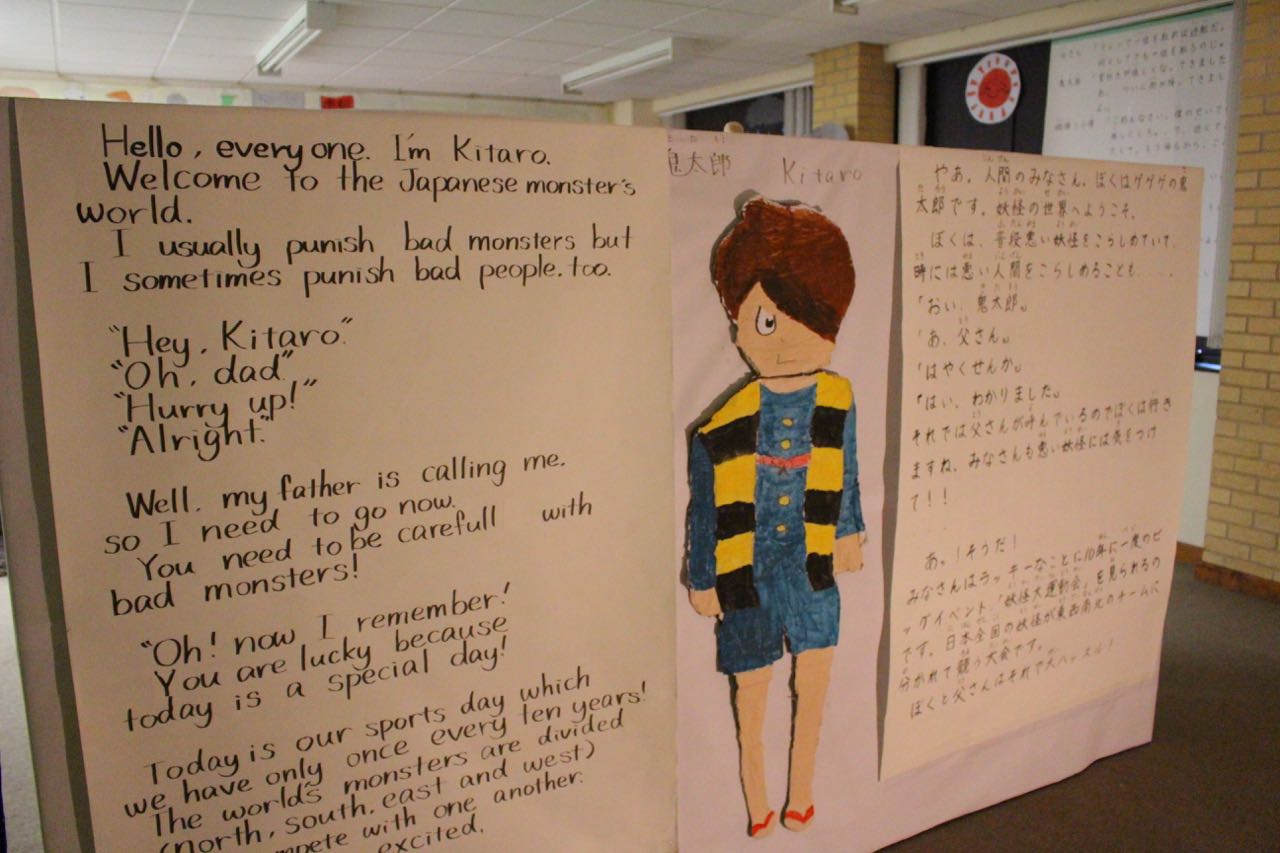 Hello, everyone. I'm Kitaro.
Welcome to the Japanese monster's
world.
I usually punish bad monsters but
I sometimes punish bad people. too.
"Hey, Kitaro."
"Oh, dad"
"Hurry up!"
"Alright."
Well, my father is calling me.
so I need to go now.
You need to be carefull with
bad monsters!
"Oh! now I remember!
You are lucky because
today is a special day!
Today is our sports day which
we have only once every ten years!
The world's monsters are divided
(north, south, east and west)
with one another.
excited.
鬼太郎 Kitaro
やあ。人間のみなさん。ぼくはゲゲゲの鬼
太郎です。妖怪の世界へようこそ。
ぼくは、普段悪い妖怪をこらしめていて、
時には悪い人間をこらしめることも.....。
「おい、鬼太郎。」
「あ、父さん。」
「はやくせんか。」
「はい、わかりました。」
それでは父さんが呼んでいるのでぼくは行き
ますね、みなさんも悪い妖怪には気をつけ
て!!
あっ!そうだ!
みなさんはラッキーなことに10年に一度のビ
ッグイベント、「妖怪大運動会」を見られるの
です。日本全国の妖怪が東西南北のチームに
分かれて競う大会です。
ぼくと父さんはそれで大ハッスル!